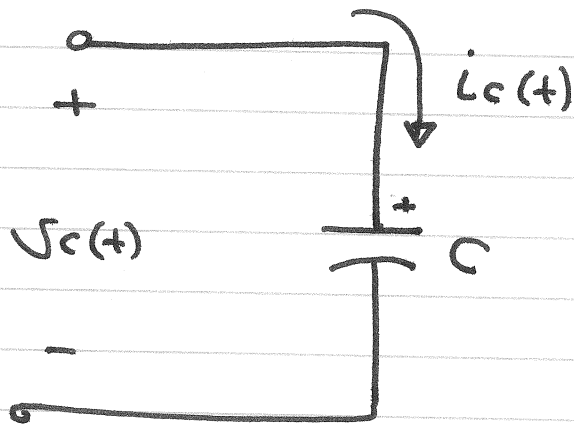 ic(t)
+
+
vc(t)
C
-